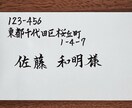 123-456
東都千代田区桜丘町
1-4-7
佐藤 和明様